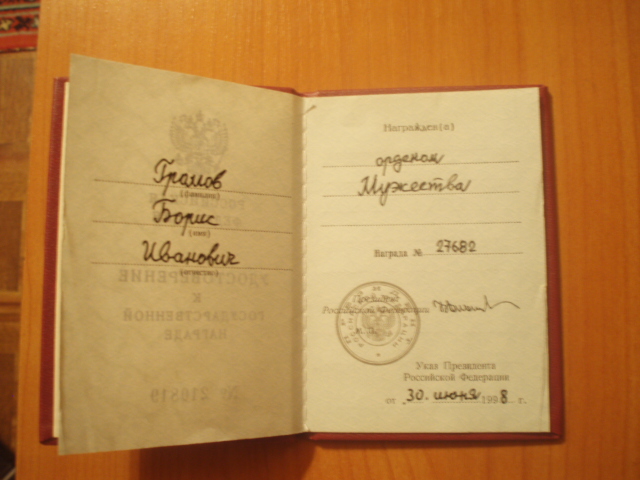 Громов
(фамилия)
Борис
(имя)
Иванович
(отчество)
Награжден(а)
орденом
Мужества
Награда № 27682
Президент
Российской Федерации
Указ Президента
Российской Федерации
от 30 июня 1998 г.
УДОСТОВЕРЕНИЕ
К
ГОСУДАРСТВЕННОЙ
НАГРАДЕ